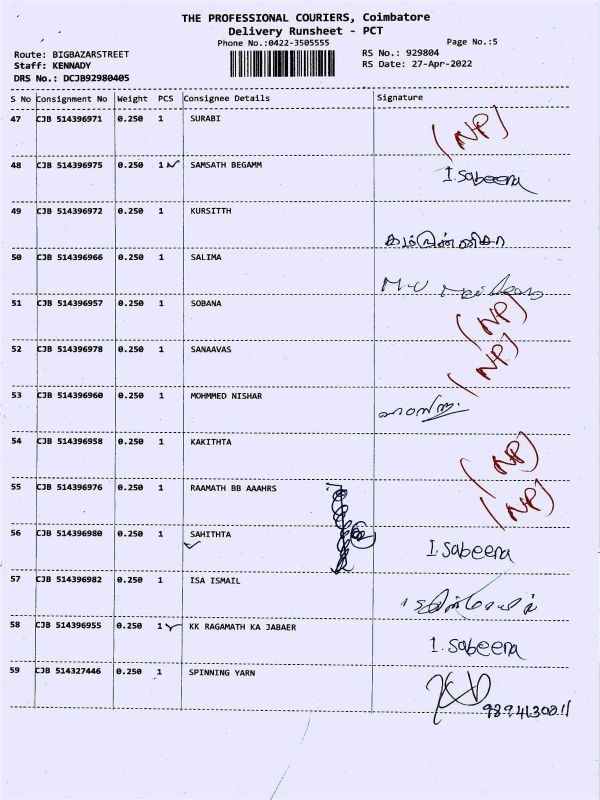 THE PROFESSIONAL COURIERS, Coimbatore
Delivery Runsheet - PCT
Phone No.:0422-3505555 Page No.:5
Route: BIGBAZARSTREET RS No.: 929804
Staff: KENNADY RS Date: 27-Apr-2022
DRS No.: DCJB92980405
S No Consignment No Weight PCS Consignee Details Signature
47 CJB 514396971 0.250 1 SURABI (NP)
48 CJB 514396975 0.250 1 SAMSATH BEGAMM I.Sabeena
49 CJB 514396972 0.250 1 KURSITTH
50 CJB 514396966 0.250 1 SALIMA
51 CJB 514396957 0.250 1 SOBANA (NP)
52 CJB 514396978 0.250 1 SANAAVAS (NP)
53 CJB 514396960 0.250 1 MOHMMED NISHAR
54 CJB 514396958 0.250 1 KAKITHTA (NP)
55 CJB 514396976 0.250 1 RAAMATH BB AAAHRS (NP)
56 CJB 514396980 0.250 1 SAHITHTA I.Sabeena
57 CJB 514396982 0.250 1 ISA ISMAIL
58 CJB 514396955 0.250 1 KK RAGAMATH KA JABAER I.Sabeena
59 CJB 514327446 0.250 1 SPINNING YARN